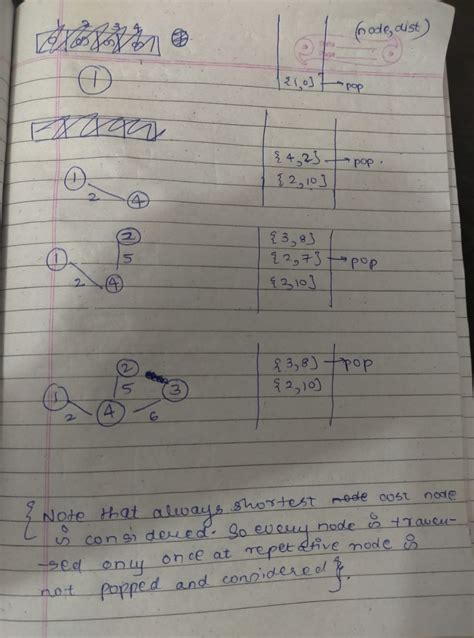 (node, dist)
1
{1,0} → pop
{4,2} → pop.
{2,10}
1
2
4
2
{3,8}
{2,7} → pop
{2,10}
1
5
2
4
{3,8} → pop
{2,10}
2
3
1
5
2
4
6
{ Note that always shortest cost node
is considered. So every node is traver-
-sed only once at repetative node is
not popped and considered }.